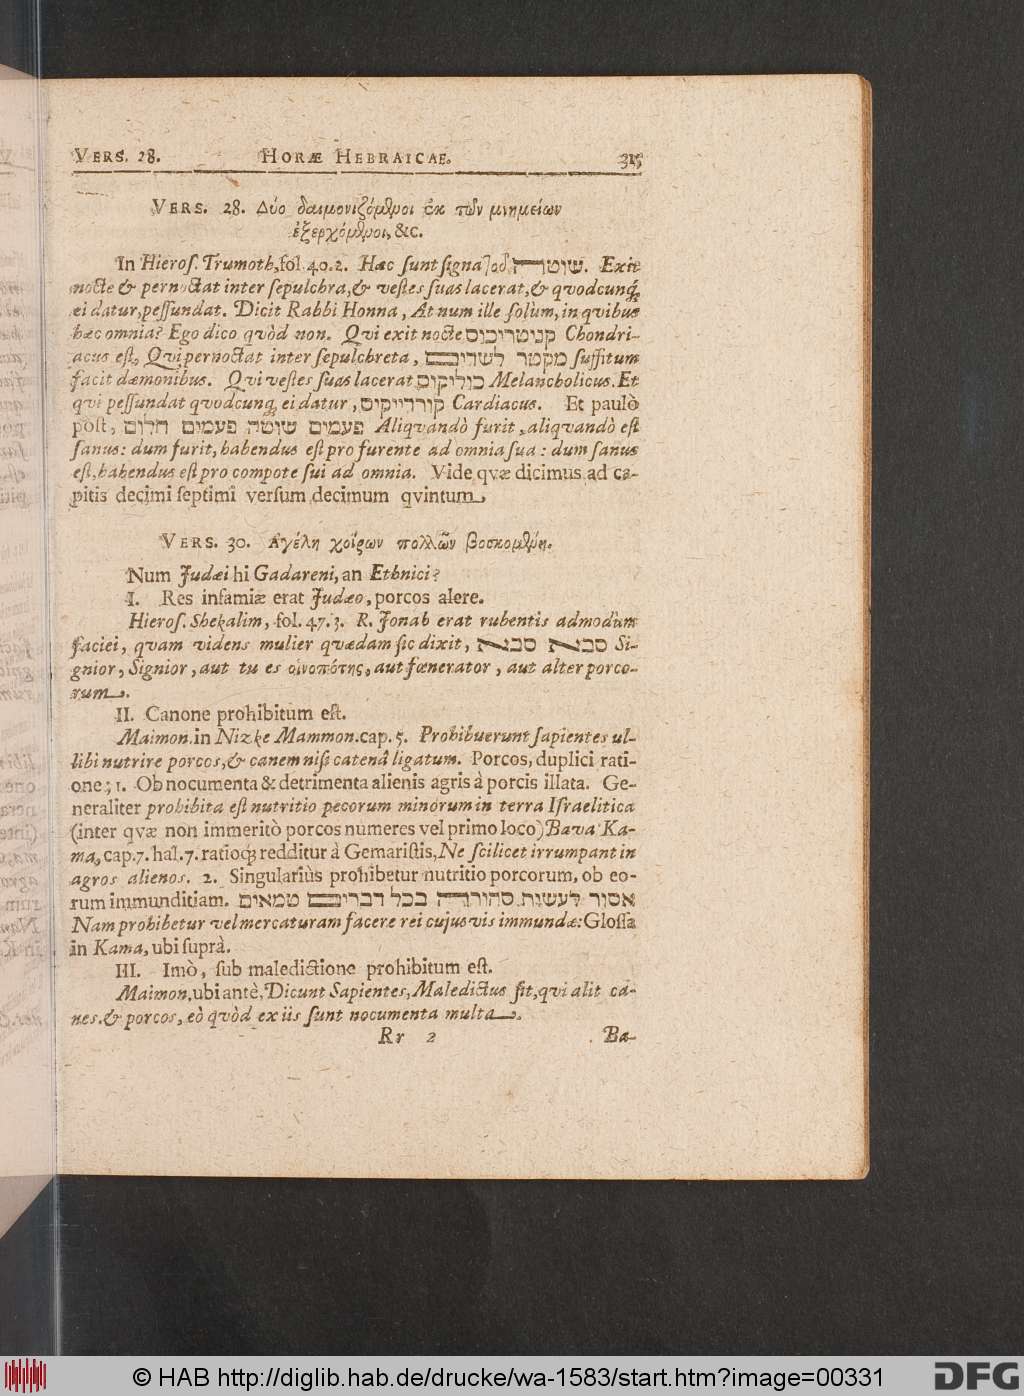 VERS. 28. HORÆ HEBRAICAE. 315
VERS. 28. Δύο δαιμονιζόμϑροι ἐκ τῶν μνημείων
ἐξερχόμϑροι, &c.
In Hieros. Trumoth, fol. 40. 2. Hæc sunt signa שוטה. Exit
nocte & pernoctat inter sepulchra, & vestes suas lacerat, & qvodcunq;
ei datur, pessundat. Dicit Rabbi Honna, At num ille solùm, in qvibus
hæc omnia? Ego dico qvòd non. Qvi exit nocte קניטריכוס Chondri-
acus est, Qvi pernoctat inter sepulchreta, מקטר לשדים suffitum
facit dæmonibus. Qvi vestes suas lacerat כוליקוס Melancholicus. Et
qvi pessundat qvodcunq; ei datur, קורדייקוס Cardiacus. Et paulò
post, פעמים שוטה פעמים חלום Aliqvandò furit, aliqvandò est
sanus: dum furit, habendus est pro furente ad omnia sua: dum sanus
est, habendus est pro compote sui ad omnia. Vide qvæ dicimus ad ca-
pitis decimi septimi versum decimum qvintum.
VERS. 30. Αγέλη χοίρων πολλῶν βοσκομϑρη.
Num Judæi hi Gadareni, an Ethnici?
I. Res infamiæ erat Judæo, porcos alere.
Hieros. Shekalim, fol. 47. 3. R. Jonah erat rubentis admodùm
faciei, quam videns mulier qvædam sic dixit, סבא סבא Si-
gnior, Signior, aut tu es οἰνοπότης, aut fœnerator, aut alter porco-
rum.
II. Canone prohibitum est.
Maimon. in Nizke Mammon. cap. 5. Prohibuerunt sapientes ul-
libi nutrire porcos, & canem nisi catenâ ligatum. Porcos, duplici rati-
one; 1. Ob nocumenta & detrimenta alienis agris à porcis illata. Ge-
neraliter prohibita est nutritio pecorum minorum in terra Israelitica
(inter qvæ non immeritò porcos numeres vel primo loco) Bava Ka-
ma, cap. 7. hal. 7. ratioq; redditur à Gemaristis, Ne scilicet irrumpant in
agros alienos. 2. Singulariùs prohibetur nutritio porcorum, ob eo-
rum immunditiam. אסור לעשות סחורה בכל דברים טמאים
Nam prohibetur vel mercaturam facere rei cujusvis immundæ: Glossa
in Kama, ubi suprà.
III. Imò, sub maledictione prohibitum est.
Maimon, ubi antè, Dicunt Sapientes, Maledictus sit, qvi alit ca-
nes. & porcos, eò qvòd ex iis sunt nocumenta multa.
Rr 2 Ba-
© HAB http://diglib.hab.de/drucke/wa-1583/start.htm?image=00331 DFG